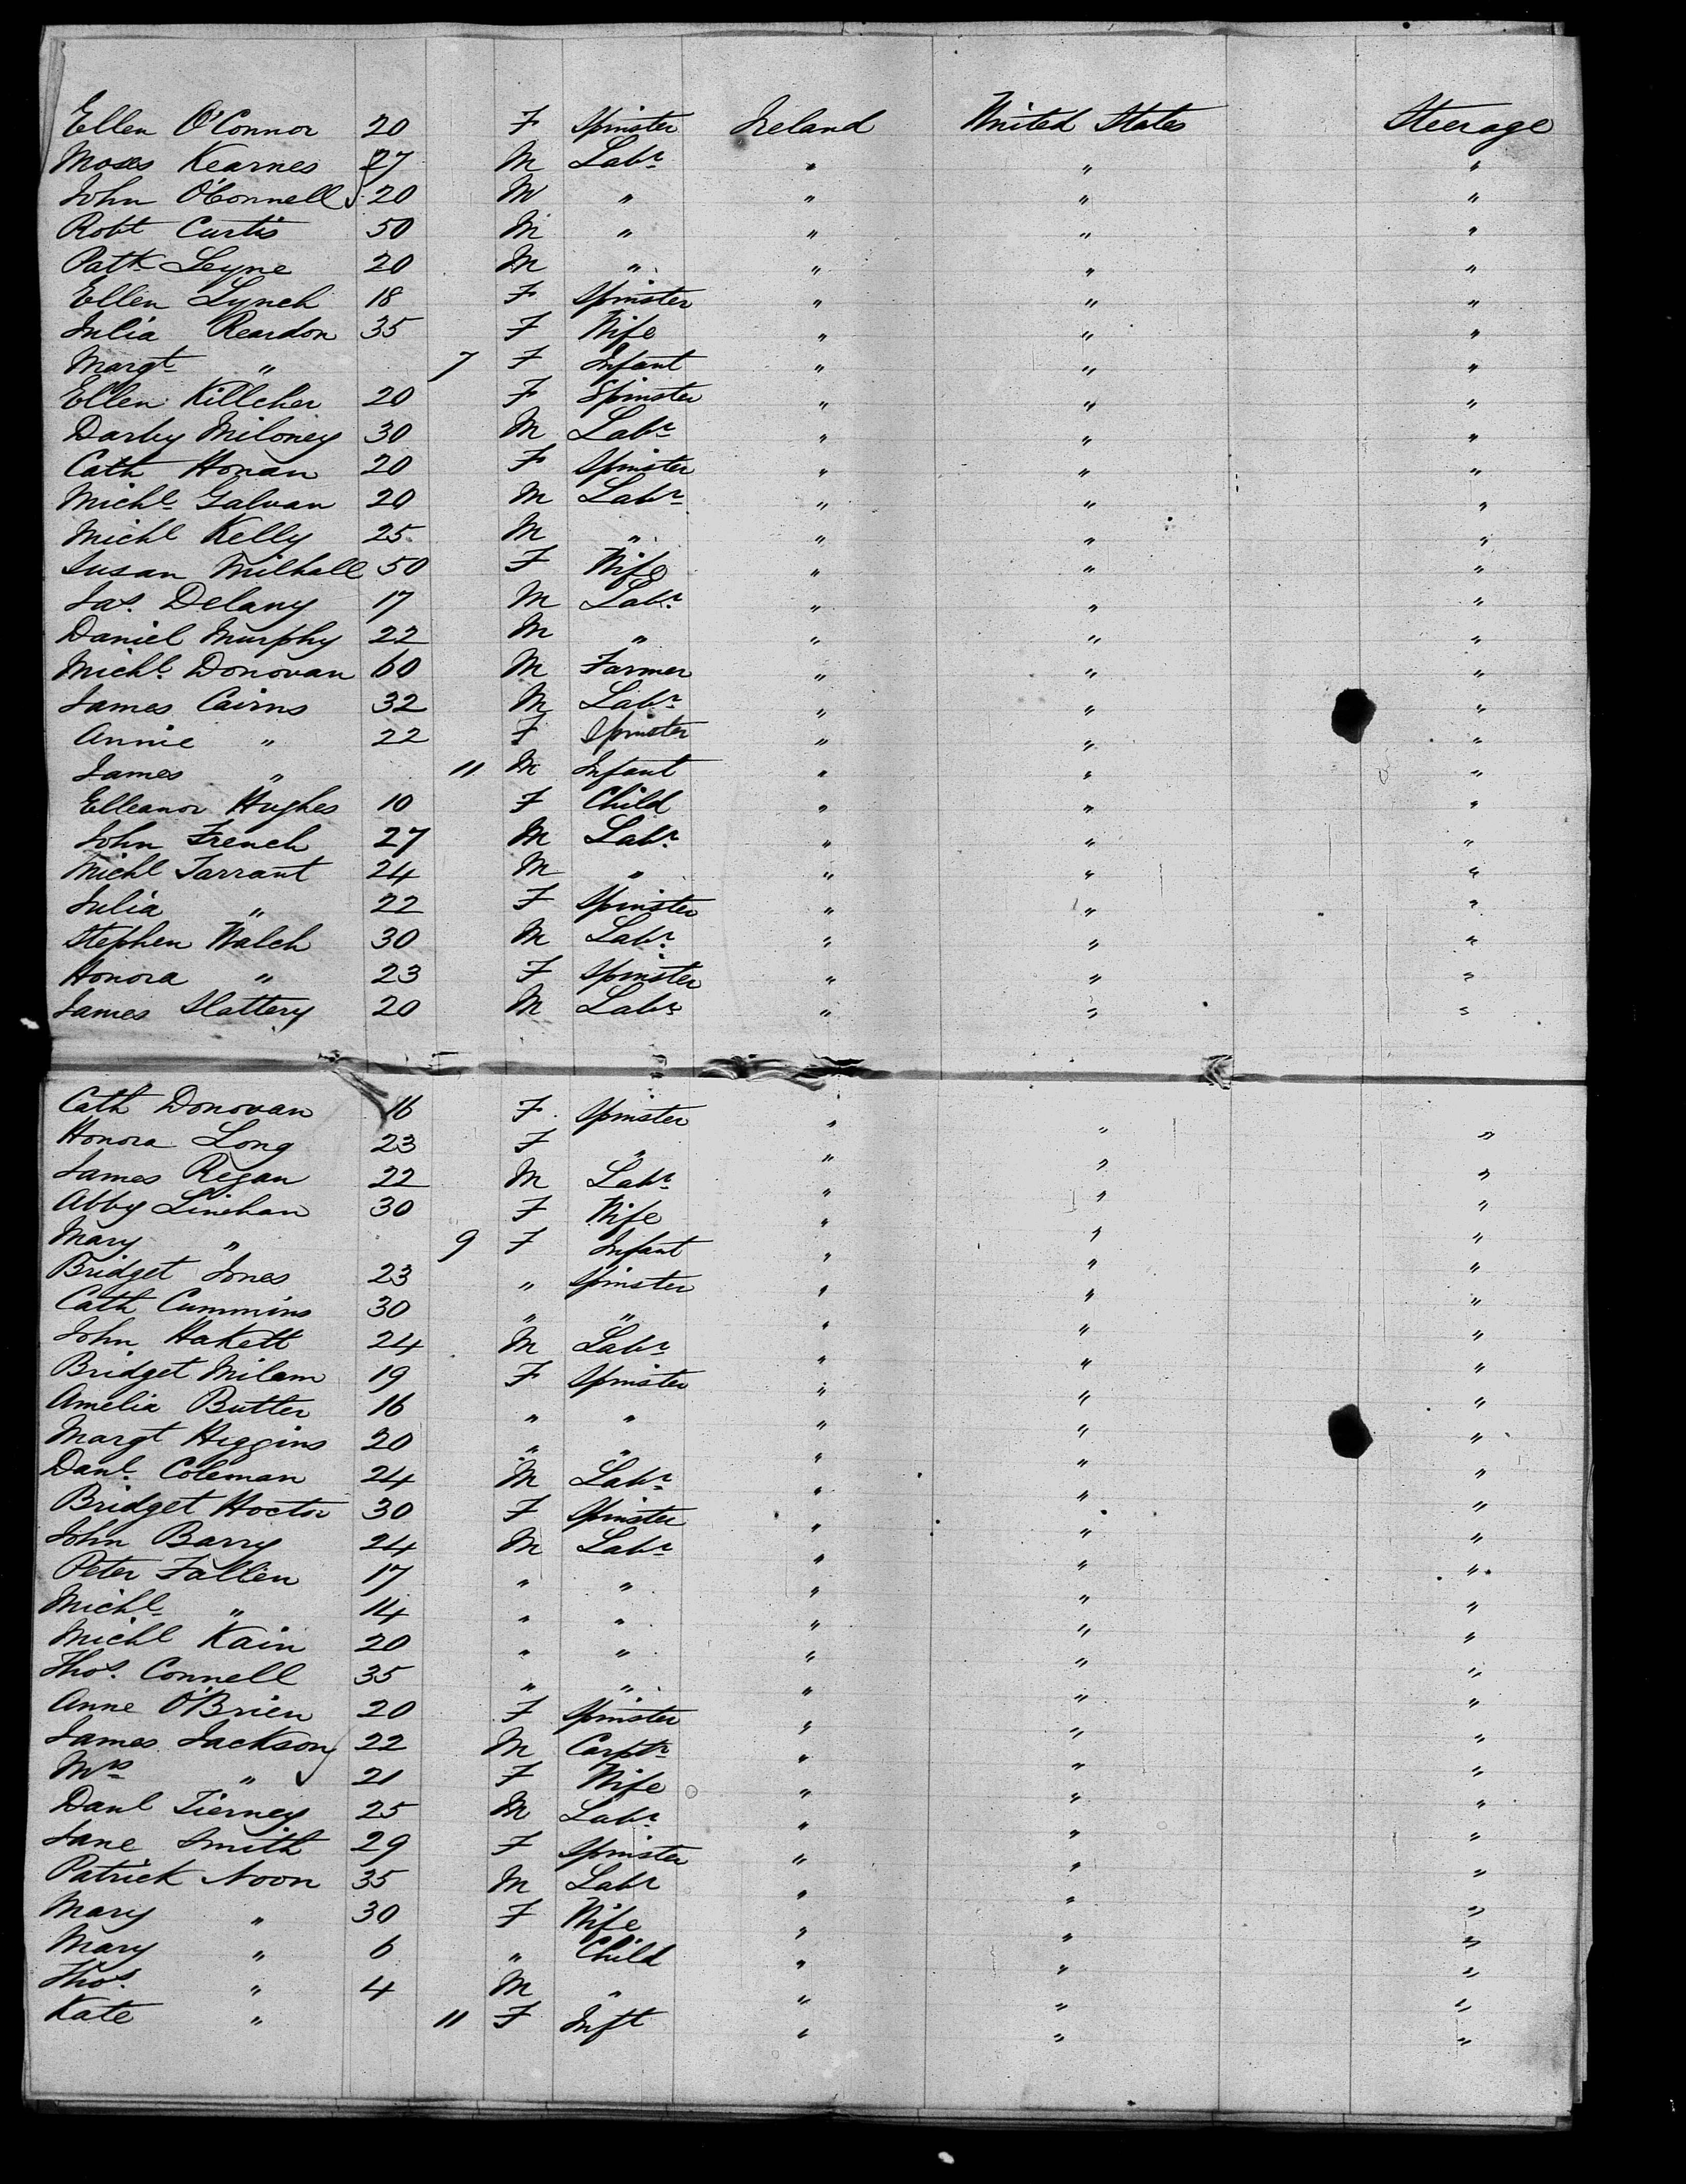 Ellen O'Connor 20 F Spinster Ireland United States Steerage
Moses Kearnes 27 M Labr " " "
John O'Connell 20 M " " " "
Robt Curtis 50 M " " " "
Patk Leyne 20 M " " " "
Ellen Lynch 18 F Spinster " " "
Julia Reardon 35 F Wife " " "
Margt " 7 F Infant " " "
Ellen Killeher 20 F Spinster " " "
Darby Miloney 30 M Labr " " "
Cath Honan 20 F Spinster " " "
Michl Galvan 20 M Labr " " "
Michl Kelly 25 M " " " "
Susan Milhall 50 F Wife " " "
Jas. Delany 17 M Labr " " "
Daniel Murphy 22 M " " " "
Michl Donovan 60 M Farmer " " "
James Cairns 32 M Labr " " "
Annie " 22 F Spinster " " "
James " 11 M Infant " " "
Elleanor Hughes 10 F Child " " "
John French 27 M Labr " " "
Michl Tarrant 24 M " " " "
Julia " 22 F Spinster " " "
Stephen Walch 30 M Labr " " "
Honora " 23 F Spinster " " "
James Slattery 20 M Labr " " "
Cath Donovan 16 F Spinster " " "
Honora Long 23 F " " " "
James Regan 22 M Labr " " "
Abby Linehan 30 F Wife " " "
Mary " 9 F Infant " " "
Bridget Jones 23 " Spinster " " "
Cath Cummins 30 " " " " "
John Hakett 24 M Labr " " "
Bridget Milam 19 F Spinster " " "
Amelia Butter 16 " " " " "
Margt Higgins 20 " " " " "
Danl. Coleman 24 M Labr " " "
Bridget Hoctor 30 F Spinster " " "
John Barry 24 M Labr " " "
Peter Fallen 17 " " " " "
Michl " 14 " " " " "
Michl Kain 20 " " " " "
Thos. Connell 35 " " " " "
Anne O'Brien 20 F Spinster " " "
James Jackson 22 M Carptr " " "
Mrs " 21 F Wife " " "
Danl Tierney 25 M Labr " " "
Jane Smith 29 F Spinster " " "
Patrick Noon 35 M Labr " " "
Mary " 30 F Wife " " "
Mary " 6 " Child " " "
Thos. " 4 M " " " "
Kate " 11 F Inft " " "